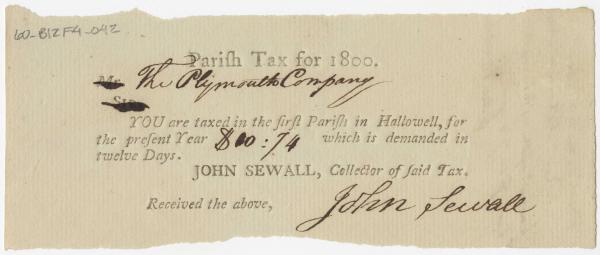 60-B12F4-042
Pariſh Tax for 1800.
Mr. The Plymouth Company
Sir,
YOU are taxed in the firſt Pariſh in Hallowell, for
the present Year $00:74 which is demanded in
twelve Days.
JOHN SEWALL, Collector of ſaid Tax.
Received the above,
John Sewall